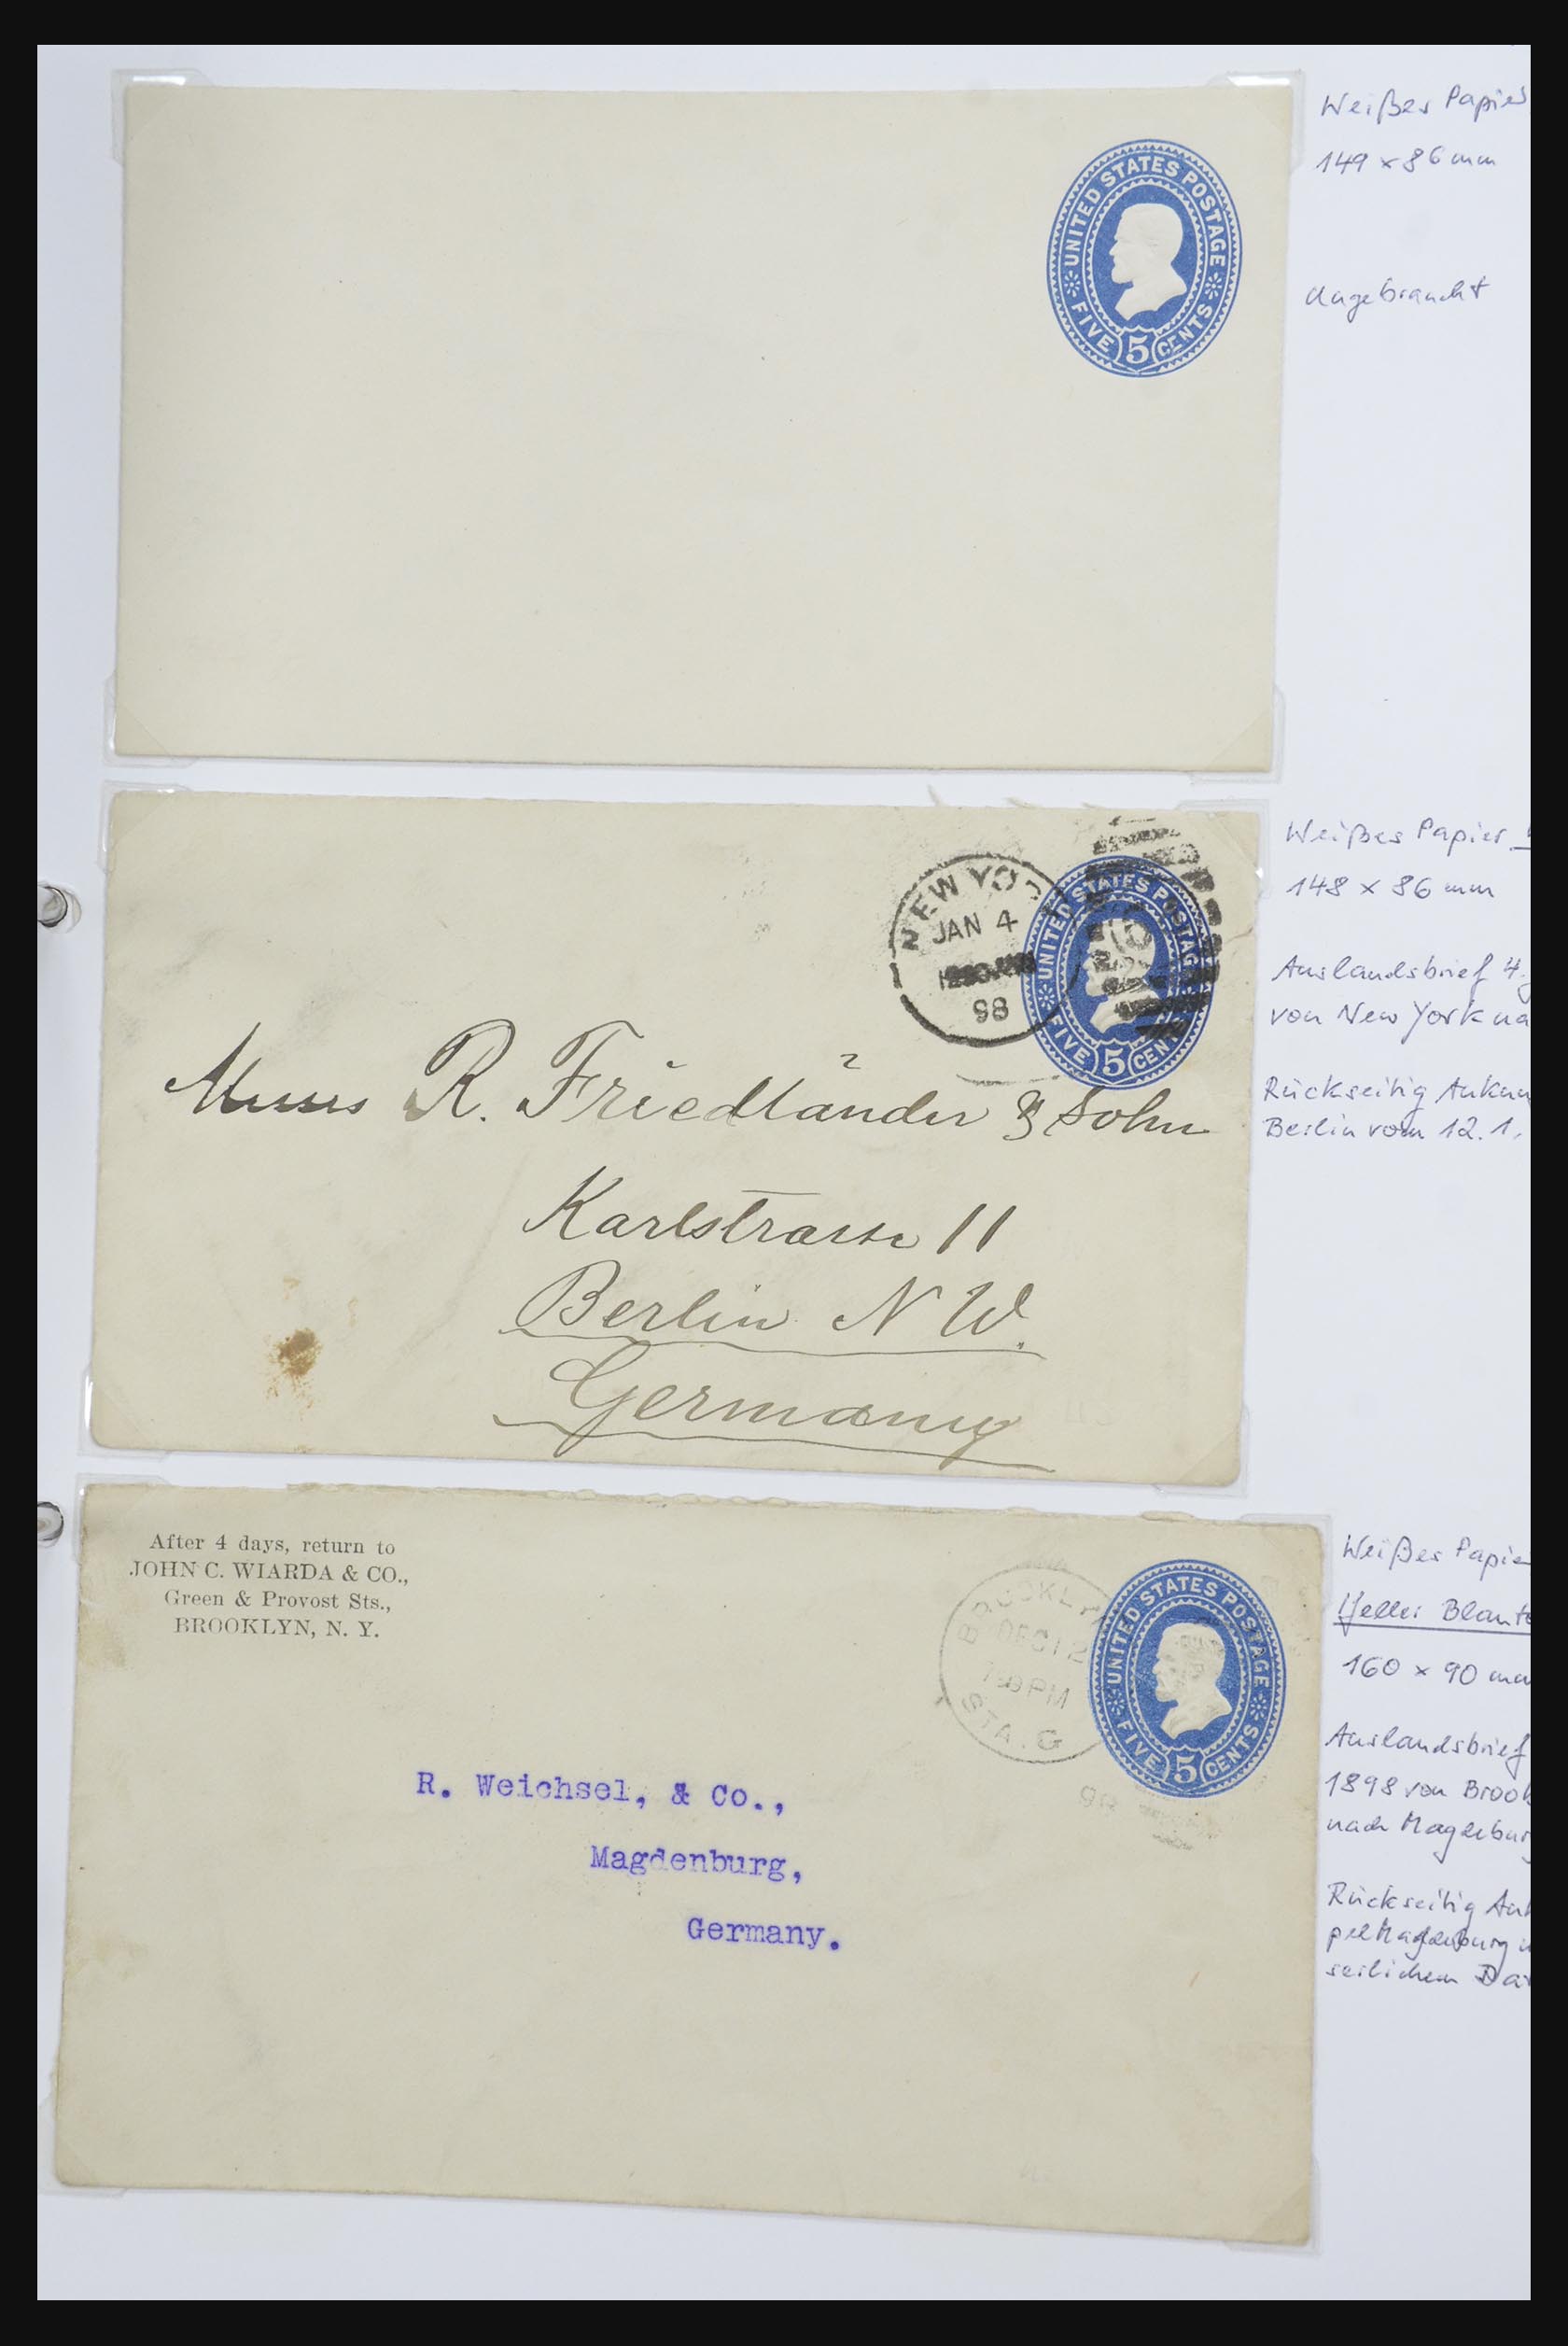 UNITED STATES POSTAGE
FIVE 5 CENTS
Weißes Papier
149 x 86 mm
Ungebraucht
NEW YO
JAN 4
98
UNITED STATES POSTAGE
FIVE 5 CENT
Messrs R. Friedländer & Sohn
Karlstrasse 11
Berlin N W.
Germany
Weißes Papier
148 x 86 mm
Auslandsbrief 4.
von New York na
Rückseitig Ankun
Berlin vom 12.1.
After 4 days, return to
JOHN C. WIARDA & CO.,
Green & Provost Sts.,
BROOKLYN, N. Y.
BROOKLYN
DEC 12
PM
STA. G
98
UNITED STATES POSTAGE
FIVE 5 CENTS
R. Weichsel, & Co.,
Magdenburg,
Germany.
Weißes Papie
Heller Blaut
160 x 90 mm
Auslandsbrief
1898 von Brook
nach Magdeburg
Rückseitig Ank
pel Magdeburg
seitlichem Da